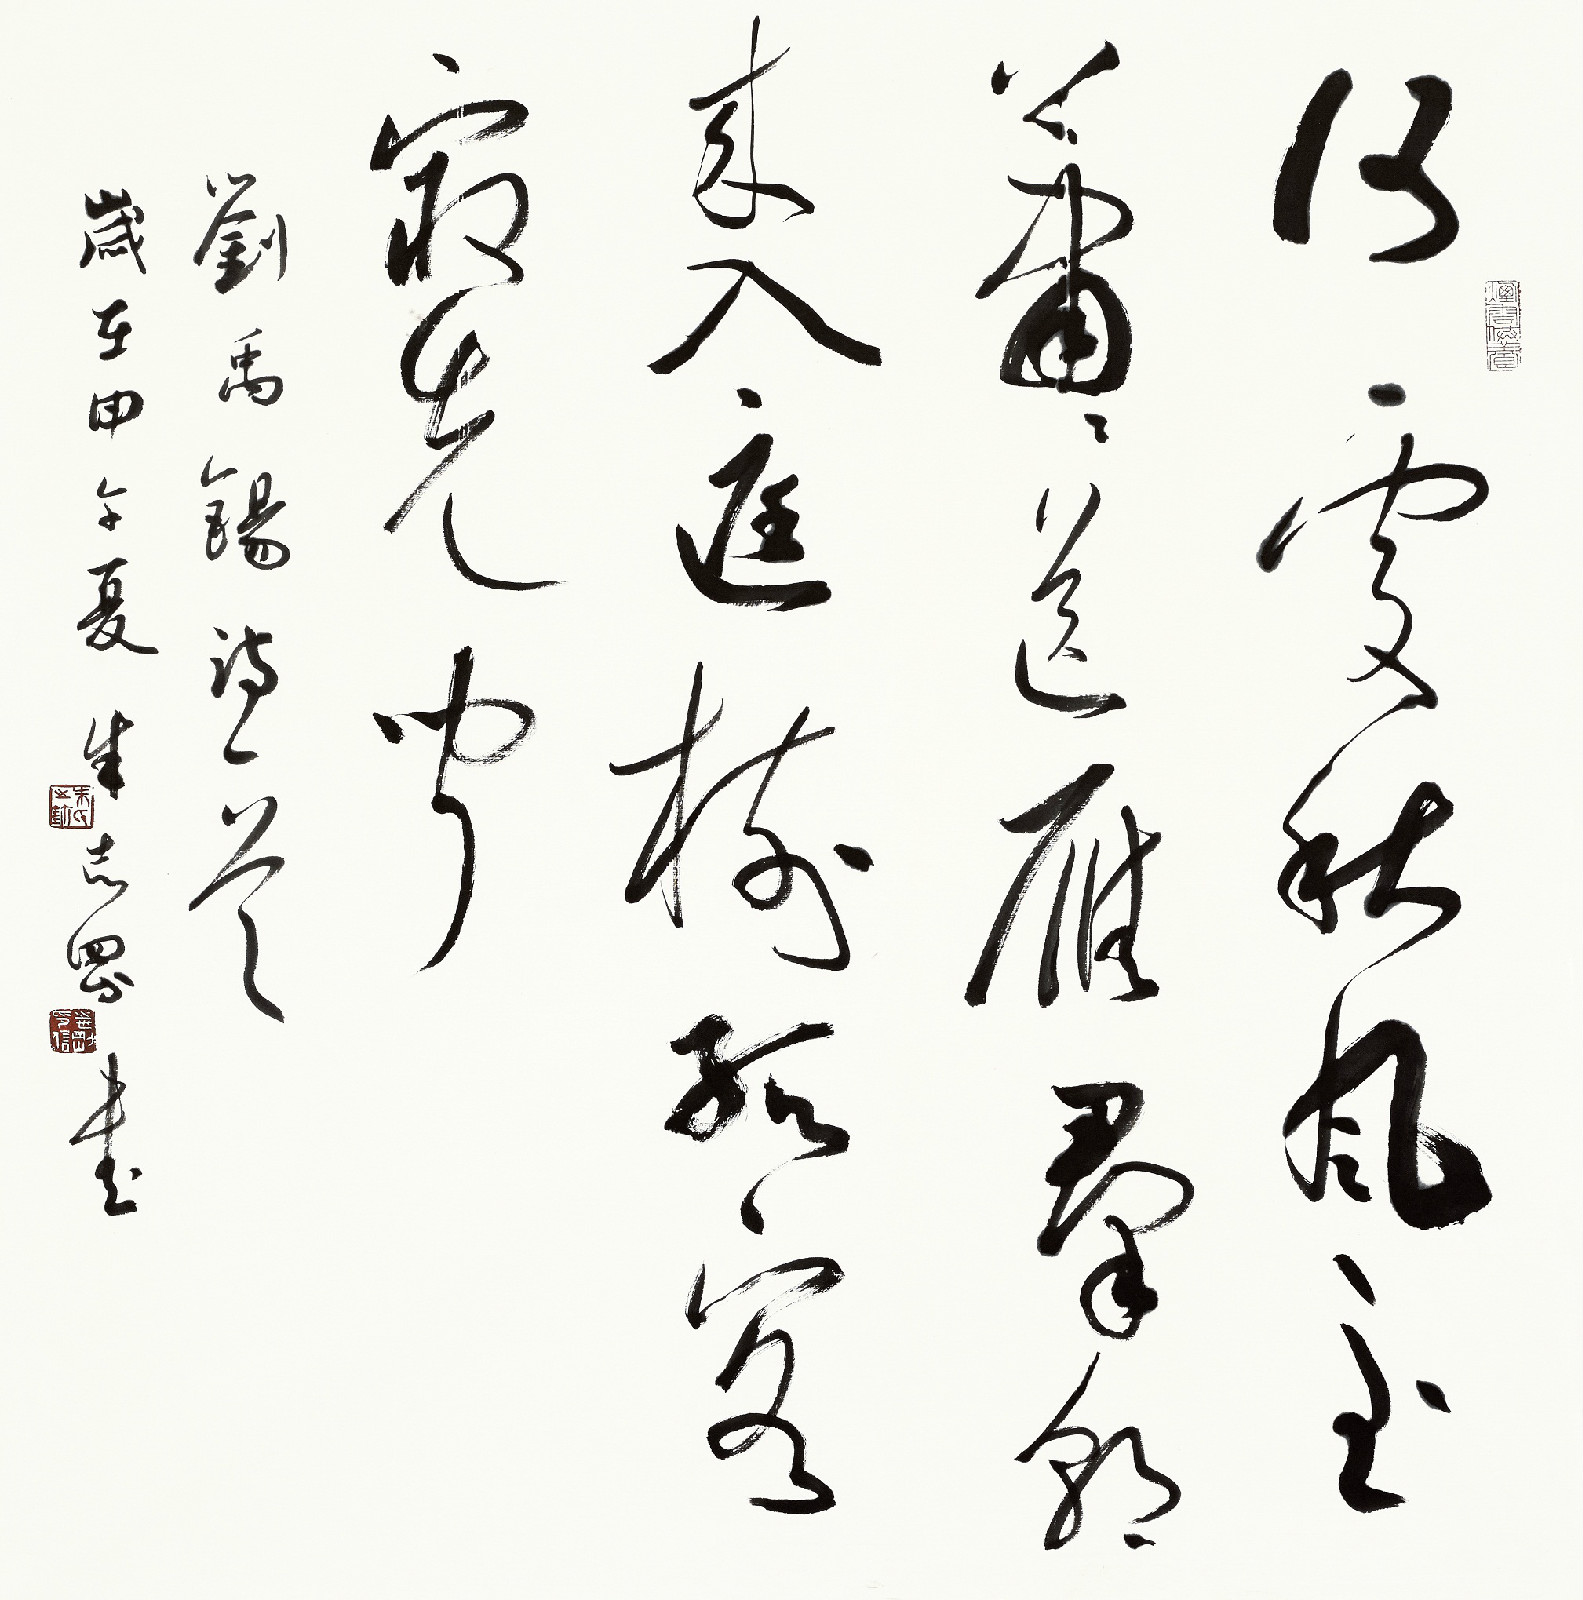 煙雲供養
何處秋風至
蕭々送雁羣朝
來入庭樹孤客
最先聞
劉禹錫詩一首
歲在甲午夏朱志剛書